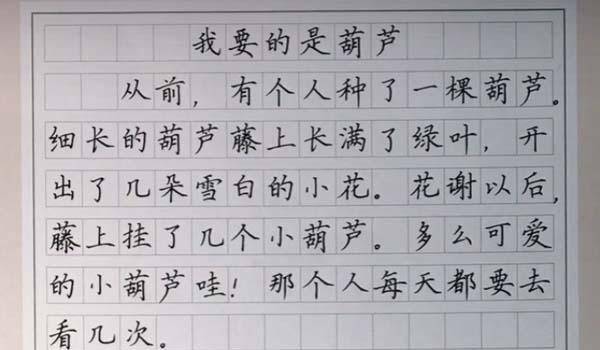 我要的是葫芦
从前，有个人种了一棵葫芦。
细长的葫芦藤上长满了绿叶，开
出了几朵雪白的小花。花谢以后，
藤上挂了几个小葫芦。多么可爱
的小葫芦哇！那个人每天都要去
看几次。